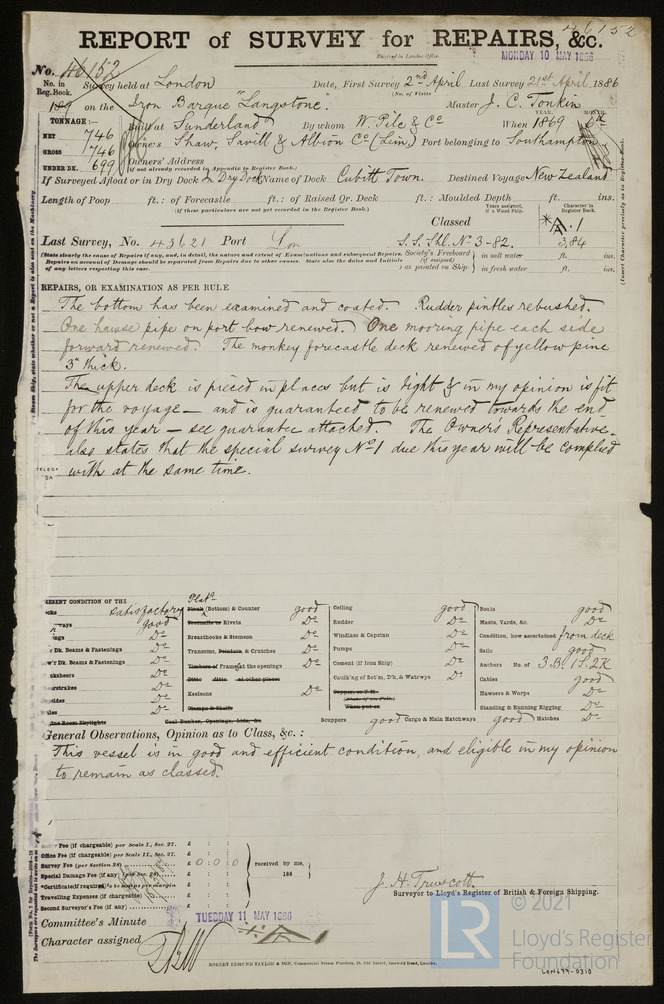 46152
REPORT of SURVEY for REPAIRS, &c.
Received in London Office
MONDAY 10 MAY 1886
No. 46152
No. in Reg. Book.
Survey held at London Date, First Survey 2nd April Last Survey 21st April 1886
(No. of Visits
on the Iron Barque "Langstone. Master J. C. Tonkin
TONNAGE:—
YEAR. MONTH.
NET 746 Built at Sunderland By whom W. Pile & Co When 1869 6th
GROSS 746 Owners Shaw, Savill & Albion Co (Lim) Port belonging to Southampton
UNDER DK. 699 Owners' Address
(if not already recorded in Appendix to Register Book.)
If Surveyed Afloat or in Dry Dock In Dry Dock Name of Dock Cubitt Town. Destined Voyage New Zealand
Length of Poop ft.: of Forecastle ft.: of Raised Qr. Deck ft.: Moulded Depth ft. ins.
(if these particulars are not yet recorded in the Register Book.)
Years assigned, if a Wood Ship.
Character in Register Book.
Classed A.1
Last Survey, No. 43621 Port Lon S.S. Lhl. No 3-82. 3,84
(State clearly the cause of Repairs if any, and, in detail, the nature and extent of Examinations and subsequent Repairs.
Repairs on account of Damage should be separated from Repairs due to other causes. State also the dates and Initials
of any letters respecting this case.
Society's Freeboard (if assigned) as painted on Ship
in salt water ft. ins.
in fresh water ft. ins.
(Insert Character precisely as in Register Book.
REPAIRS, OR EXAMINATION AS PER RULE
The bottom has been examined and coated. Rudder pintles rebushed.
One hawse pipe on port bow renewed. One mooring pipe each side
forward renewed. The monkey forecastle deck renewed of yellow pine
3" thick.
The upper deck is pieced in places but is tight & in my opinion is fit
for the voyage – and is guaranteed to be renewed towards the end
of this year – see guarantee attached. The Owner's Representative
also states that the special survey No 1 due this year will be complied
with at the same time.
TELEG
SA
PRESENT CONDITION OF THE
Decks satisfactory
good
Do
Dk. Beams & Fastenings Do
Dk. Beams & Fastenings Do
Do
Do
Do
Do
Engine Room Skylights
Plats
Plank (Bottom) & Counter good
Treenails or Rivets Do
Breasthooks & Stemson Do
Transoms, Pointers, & Crutches Do
Timbers of Frame at the openings
Ditto ditto at other places
Keelsons Do
Clamps & Shelfs
Coal Bunker, Openings, Lids, &c.
Ceiling good
Rudder Do
Windlass & Capstan Do
Pumps Do
Cement (if Iron Ship) Do
Caulk'ng of Bot'm, D'k, & Waterwys Do
Scuppers good Cargo & Main Hatchways good Hatches Do
Boats good
Masts, Yards, &c. Do
Condition, how ascertained from deck
Sails good
Anchors No. of 3.B. 1S. 2K
Cables good
Hawsers & Warps Do
Standing & Running Rigging Do
General Observations, Opinion as to Class, &c.:
This vessel is in good and efficient condition, and eligible in my opinion
to remain as classed.
Entry Fee (if chargeable) per Scale I., Sec. 27. £
Office Fee (if chargeable) per Scale II., Sec. 27. £
Survey Fee (per Section 28) £ 0 0 0
Special Damage Fee (if any) (per Sec. 28) £
*Certificate (if required) to be sent as per margin £
Travelling Expenses (if chargeable) £
Second Surveyor's Fee (if any) £
received by me,
188
J. H. Truscott.
Surveyor to Lloyd's Register of British & Foreign Shipping.
Committee's Minute TUESDAY 11 MAY 1886
Character assigned
ROBERT EDMUND TAYLOR & SON, Commercial Steam Printers, 19, Old Street, Goswell Road, London.
LR
© 2021
Lloyd's Register
Foundation
LON699-0310